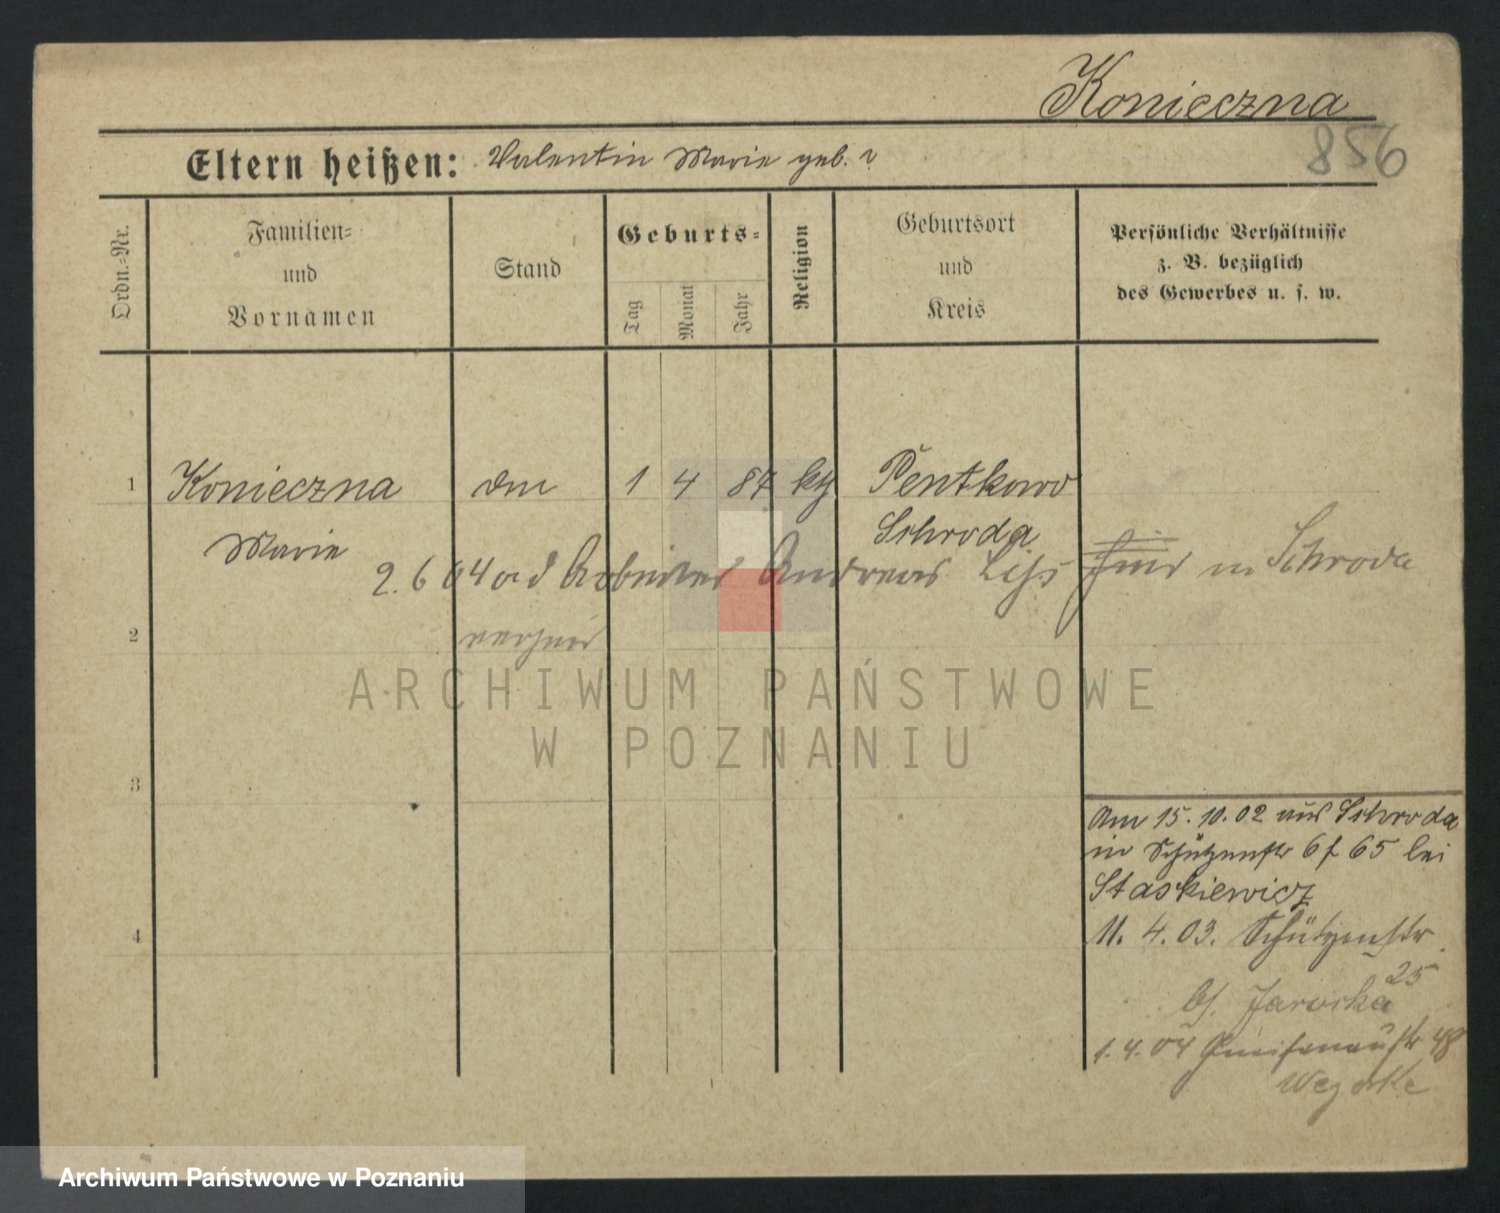 Konieczna
856
Eltern heißen: Valentin Marie geb. ?
Ordn.=Nr.
Familien=
und
Vornamen
Stand
Geburts=
Tag
Monat
Jahr
Religion
Geburtsort
und
Kreis
Persönliche Verhältnisse
z. B. bezüglich
des Gewerbes u. s. w.
1 Konieczna 1 4 87 kth Pentkowo
Marie Schroda
2. 6 04 Arbeiter Andreas in Schroda
2
ARCHIWUM PAŃSTWOWE
W POZNANIU
3
Am 15. 10. 02 aus Schroda
in Schützenstr 65 bei
Staskiewicz
4
11. 4. 03. Schützenstr
25
b/. Jarocka
1. 4. 04 Gneisenaustr 48
Archiwum Państwowe w Poznaniu